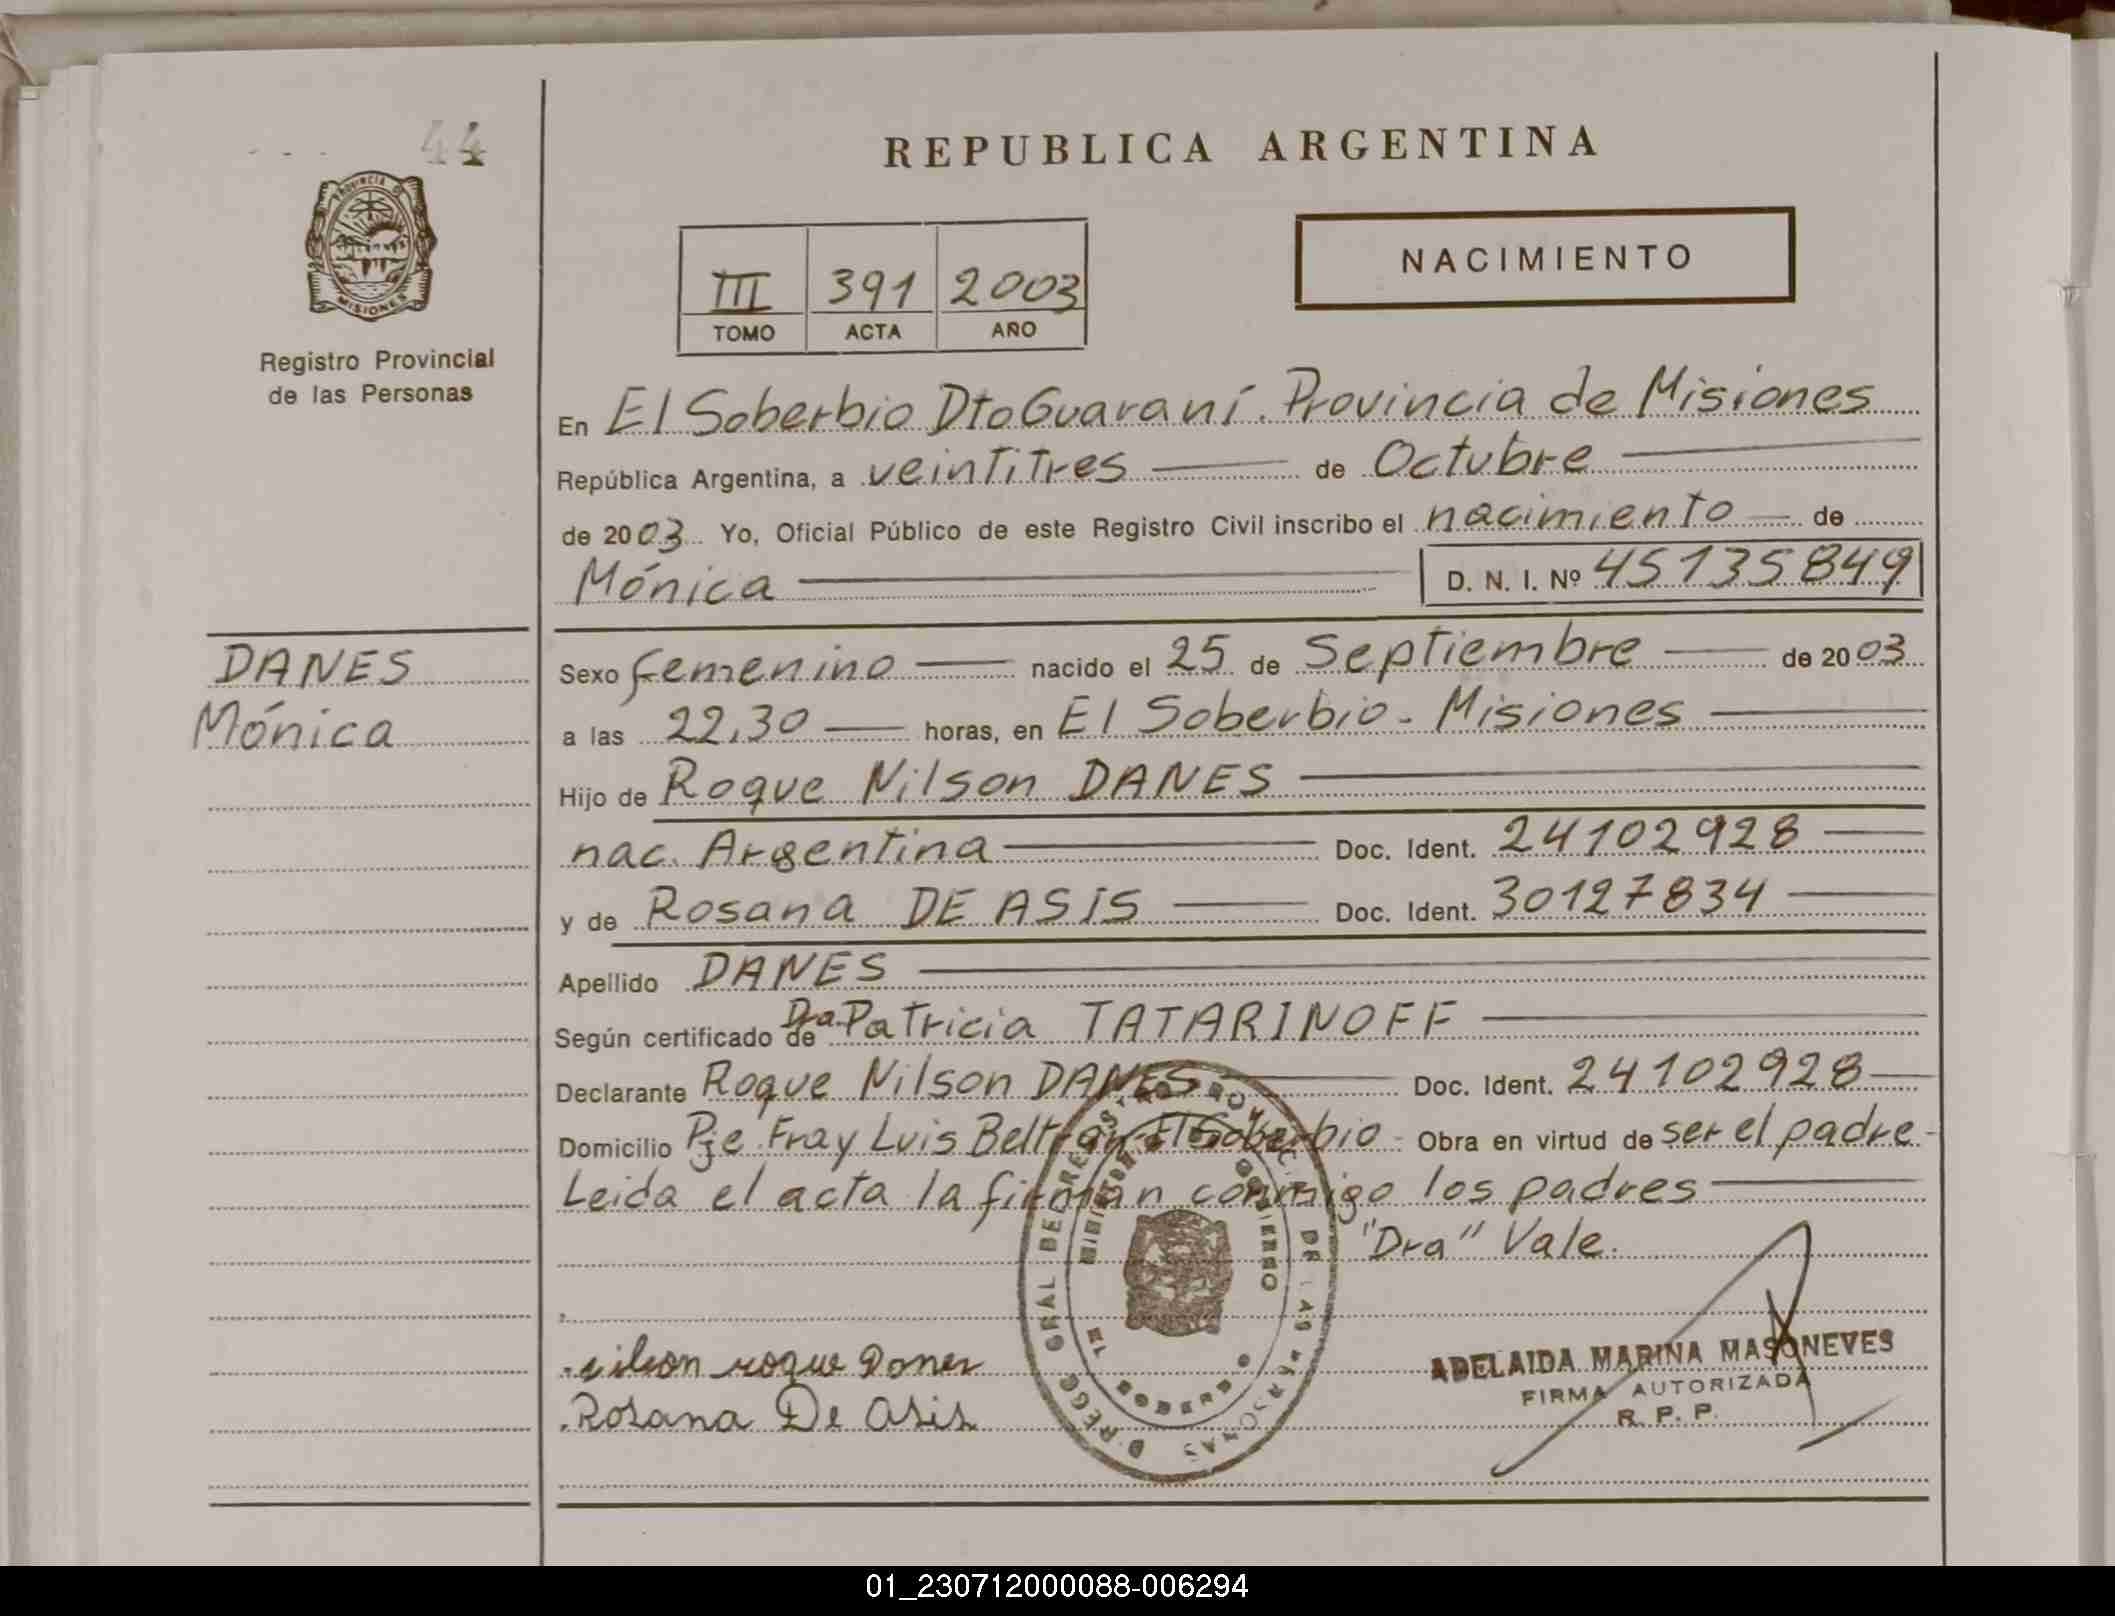 44
PROVINCIA DE
MISIONES
Registro Provincial
de las Personas
REPUBLICA ARGENTINA
III 391 2003
TOMO ACTA AÑO
NACIMIENTO
En El Soberbio Dto Guaraní. Provincia de Misiones
República Argentina, a veintitres de Octubre
de 2003 Yo, Oficial Público de este Registro Civil inscribo el nacimiento de
Mónica D. N. I. Nº 45135849
DANES
Mónica
Sexo femenino nacido el 25 de Septiembre de 2003
a las 22,30 horas, en El Soberbio - Misiones
Hijo de Roque Nilson DANES
nac. Argentina Doc. Ident. 24102928
y de Rosana DE ASIS Doc. Ident. 30127834
Apellido DANES
Según certificado de Dra. Patricia TATARINOFF
Declarante Roque Nilson DANES Doc. Ident. 24102928
Domicilio Pje Fray Luis Beltrán - El Soberbio - Obra en virtud de ser el padre -
Leida el acta la firman conmigo los padres
"Dra" Vale.
Rosana De Asis
ADELAIDA MARINA MASONEVES
FIRMA AUTORIZADA
R. P. P.
01_230712000088-006294